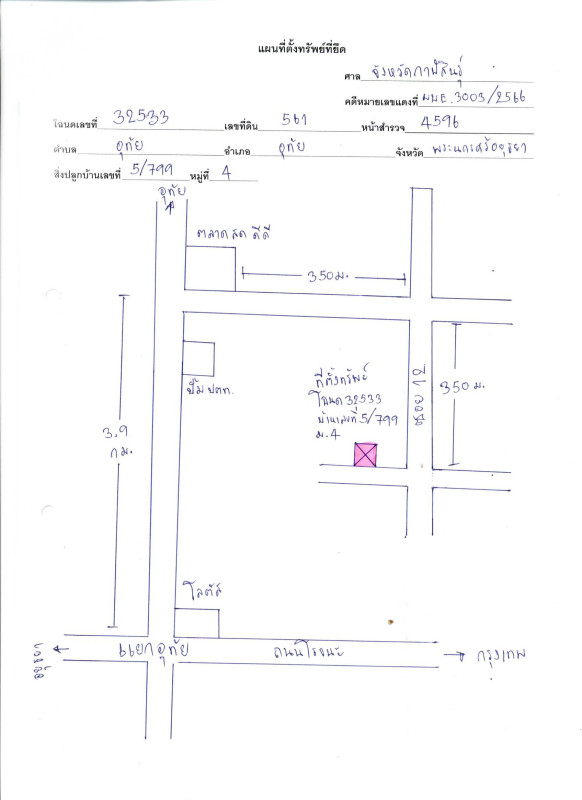 แผนที่ตั้งทรัพย์ที่ยึด
ศาล จังหวัดกาฬสินธุ์
คดีหมายเลขแดงที่ ผบE.3003/2566
โฉนดเลขที่ 32533 เลขที่ดิน 561 หน้าสำรวจ 4596
ตำบล อุทัย อำเภอ อุทัย จังหวัด พระนครศรีอยุธยา
สิ่งปลูกบ้านเลขที่ 5/799 หมู่ที่ 4
อุทัย
ตลาดสด ดีดี
350 ม.
ปั๊ม ปตท.
ที่ตั้งทรัพย์
โฉนด 32533
บ้านเลขที่ 5/799
ม.4
350 ม.
3.9
กม.
โลตัส
แยกอุทัย
ถนนโรจนะ
กรุงเทพ